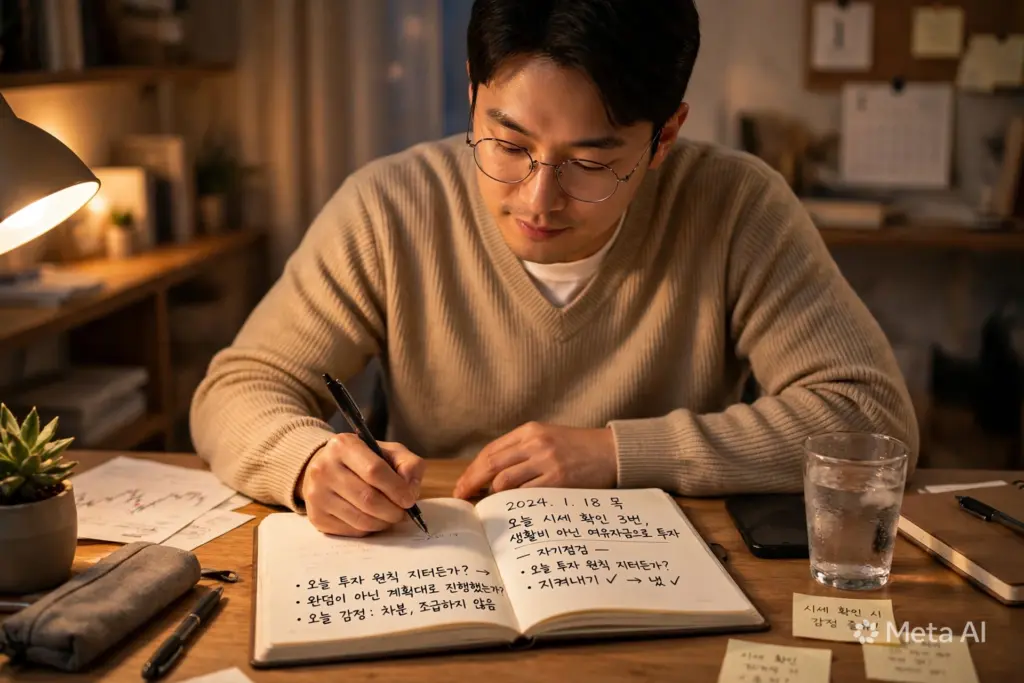 • 오늘 투자 원칙 지터든가? →
• 완덤이 아닌 계획대로 진행했는가?
• 오늘 감정 : 차분, 조급하지 않음
2024. 1. 18 목
오늘 시세 확인 3번,
생활비 아닌 여유자금으로 투자
— 자기점검 —
• 오늘 투자 원칙 지터든가?
• 지켜내기 ✓ → 냈 ✓
시세 확인 시
감정
시세 확인
Meta AI